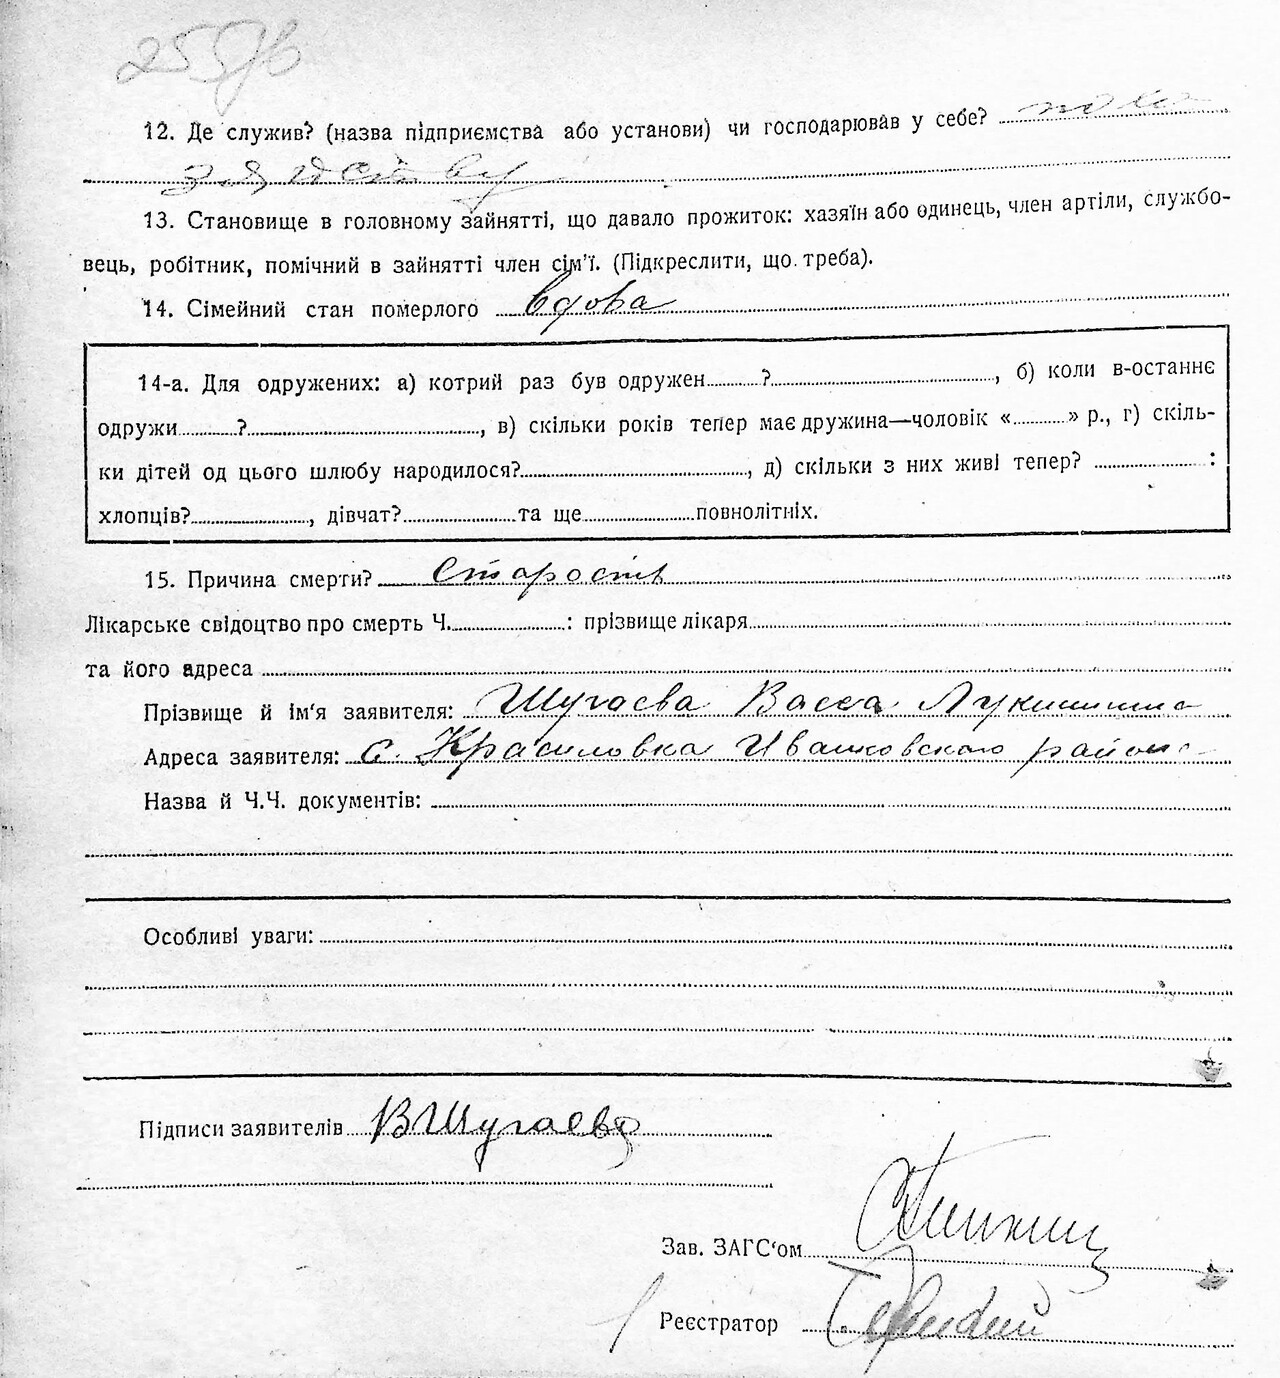 12. Де служив? (назва підприємства або установи) чи господарював у себе?
13. Становище в головному зайнятті, що давало прожиток: хазяїн або одинець, член артіли, службо-
вець, робітник, помічний в зайнятті член сім'ї. (Підкреслити, що треба).
14. Сімейний стан померлого вдова
14-а. Для одружених: а) котрий раз був одружен............?............, б) коли в-останнє
одружи............?............, в) скільки років тепер має дружина—чоловік «............» р., г) скіль-
ки дітей од цього шлюбу народилося?............, д) скільки з них живі тепер? ............:
хлопців?............, дівчат?............та ще............повнолітніх.
15. Причина смерти? Старость
Лікарське свідоцтво про смерть Ч.............: прізвище лікаря............
та його адреса
Прізвище й ім'я заявителя: Шугаева Васса Лукинишна
Адреса заявителя: с. Красиловка Ивашковского района
Назва й Ч.Ч. документів:
Особливі уваги:
Підписи заявителів ВШугаева
Зав. ЗАГС'ом
Реєстратор